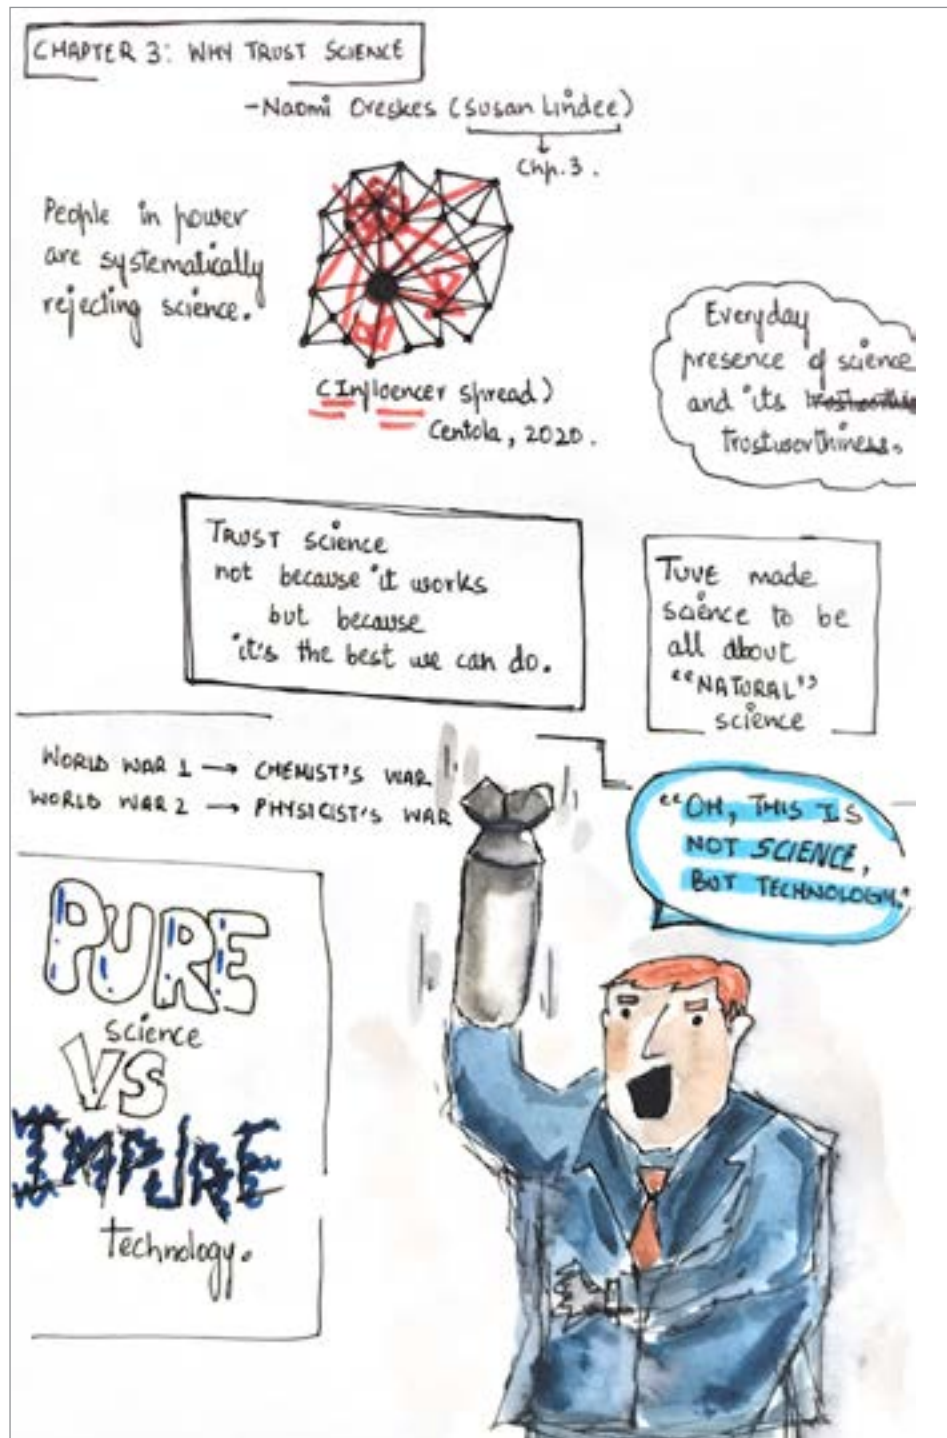 CHAPTER 3: WHY TRUST SCIENCE
-Naomi Oreskes (Susan Lindee)
Chp.3.
People in power
are systematically
rejecting science.
(Influencer spread)
Centola, 2020.
Everyday
presence of science
and its
trustworthiness.
TRUST science
not because it works
but because
it's the best we can do.
TUVE made
science to be
all about
"NATURAL"
science
WORLD WAR 1 → CHEMIST'S WAR
WORLD WAR 2 → PHYSICIST'S WAR
"OH, THIS IS
NOT SCIENCE,
BUT TECHNOLOGY."
PURE
science
VS
IMPURE
technology.